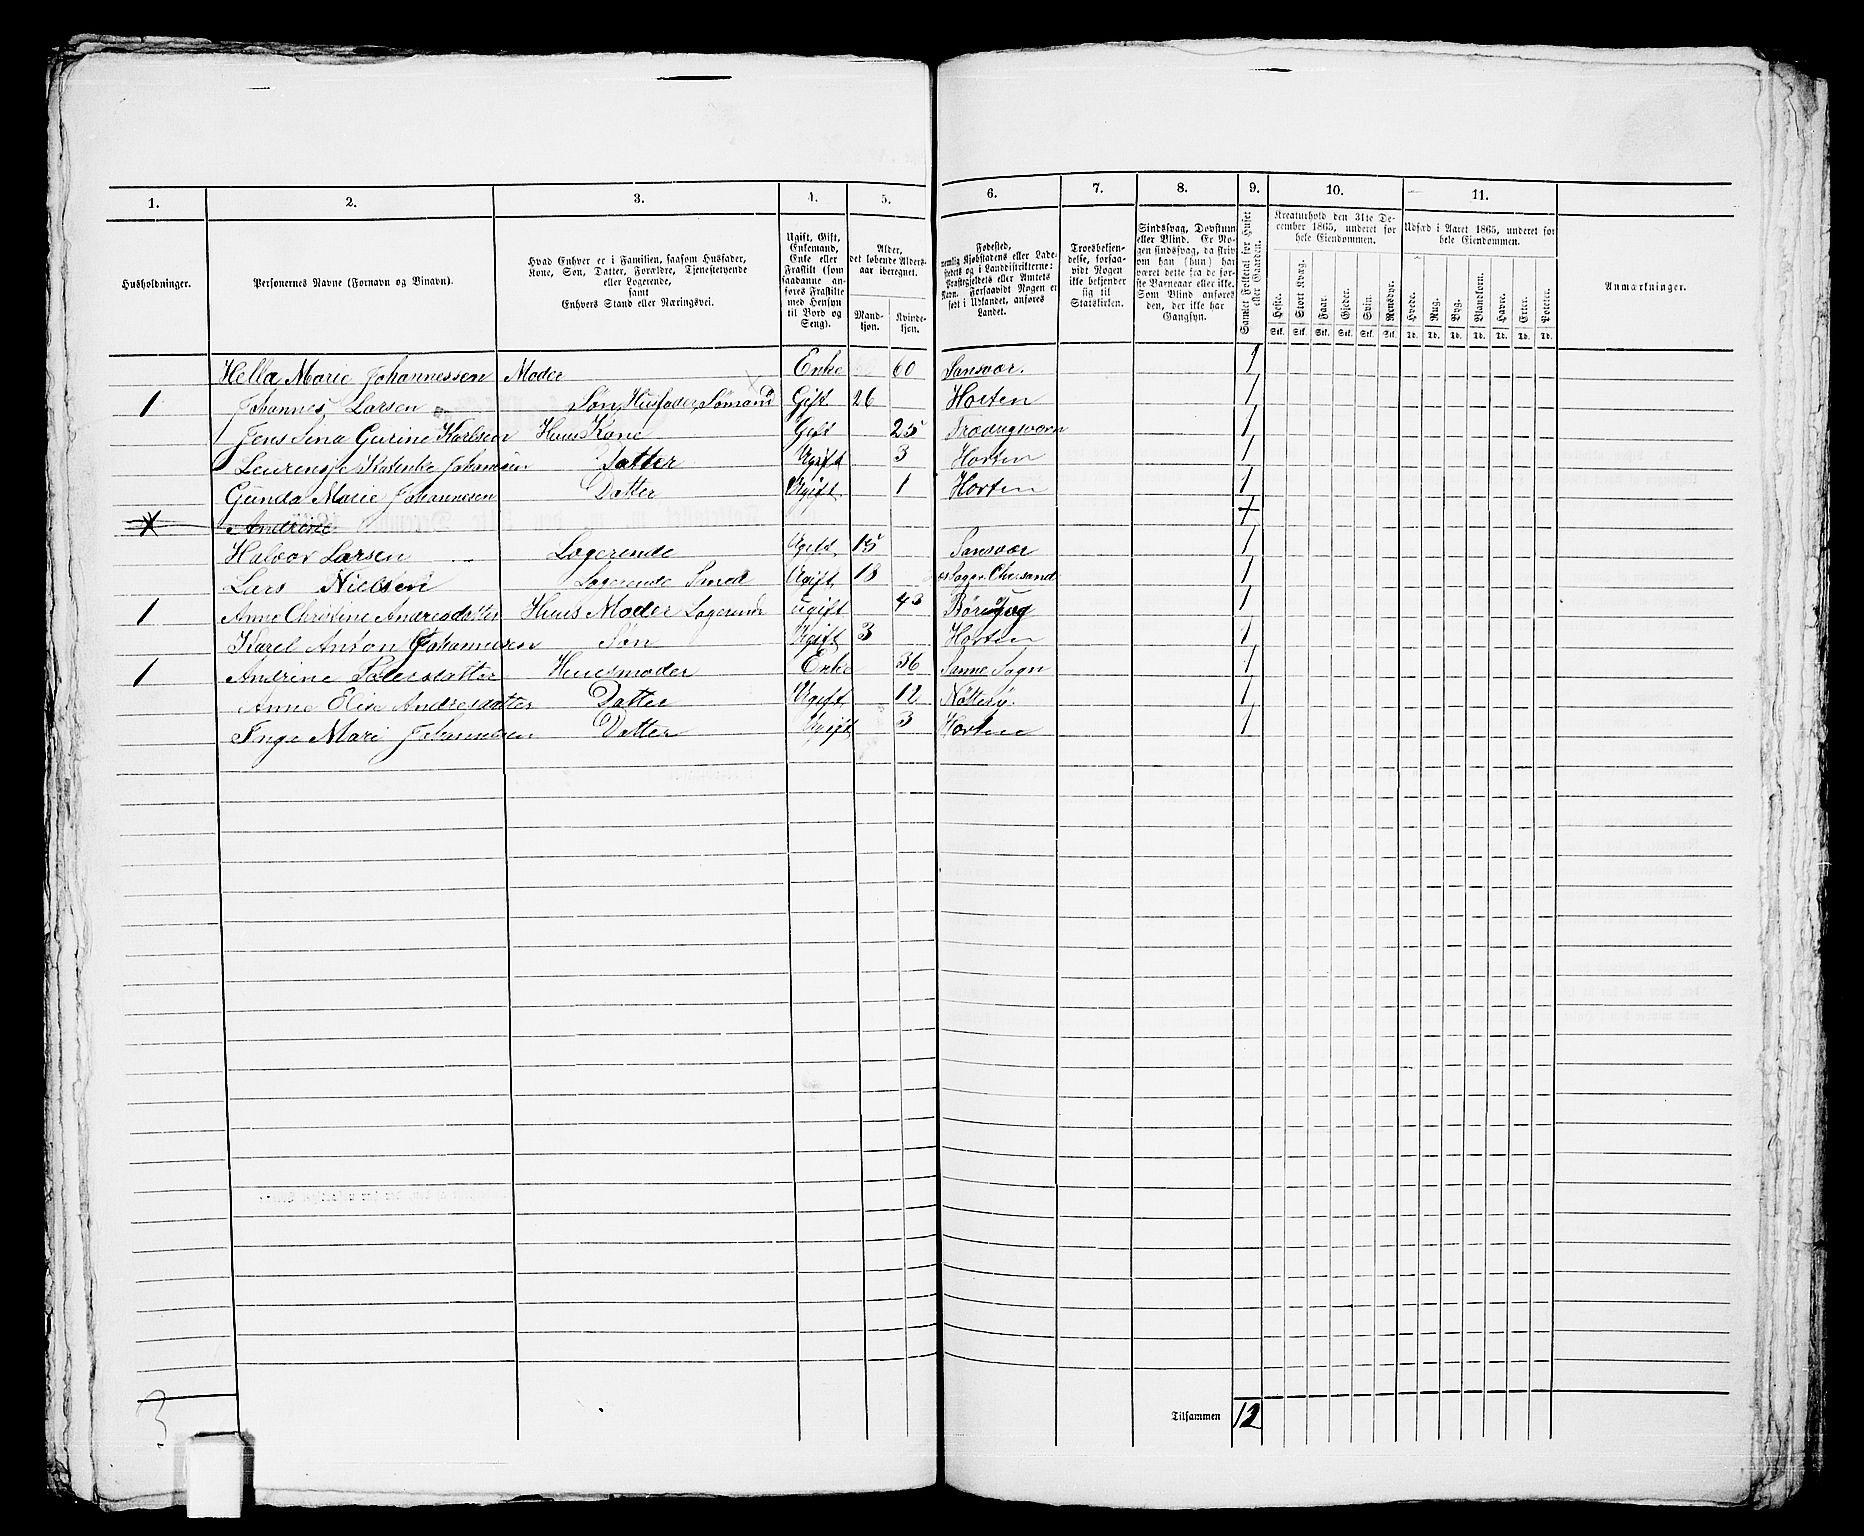 1. 2. 3. 4. 5. 6. 7. 8. 9. 10. 11.
Husholdninger.
Personernes Navne (Fornavn og Tilnavn).
Hvad Enhver er i Familien, saasom Husfader, Kone, Søn, Datter, Forældre, Tjenestetyende eller Logerende, samt Enhvers Stand eller Næringsvei.
Ugift, Gift, Enkemand, Enke eller Fraskilt (som saadanne anføres Fraskilte med Hensyn til Bord og Seng).
Alder, det løbende Aldersaar iberegnet.
Mandkjøn. Kvindekjøn.
Fødested, nemlig Kjøbstadens eller Ladestedets og i Landdistrikterne: Præstegjeldets eller Amtets Navn. Forsaavidt Nogen er født i Udlandet, anføres Landet.
Troesbekjendelse, forsaavidt Nogen ikke bekjender sig til Statskirken.
Sindssvag, Døvstum eller Blind. Er Nogen sindssvag, da skrives om han (hun) har været dette fra de første Barneaar eller ikke. Som Blind anføres den, der ikke har Gangsyn.
Samlet Folketal for Huset eller Gaarden.
Kreaturhold den 31te December 1865, underet for hele Eiendommen.
Heste. Stort Kvæg. Faar. Gjeder. Svin. Rensdyr.
Stk. Stk. Stk. Stk. Stk. Stk.
Udsæd i Aaret 1865, underet for hele Eiendommen.
Hvede. Rug. Byg. Blandkorn. Havre. Erter. Poteter.
Td. Td. Td. Td. Td. Td. Td.
Anmærkninger.
Hella Marie Johannessen Moder Enke 60 Sansvær. 1
1 Johannes Larsen Søn, Husfader, Sømand Gift 26 Horten 1
Jens Sina Gurine Karlsen Huus Kone Gift 25 1
Datter Ugift 3 Horten 1
Gunda Marie Johannesen Datter Ugift 1 Horten 1
Andrine
Halvor Larsen Logerende Ugift 15 Sansvær 1
Lars Nielsen Logerende Smed Ugift 18 1
1 Anne Christine Andreasdatter Huus Moder Logerende ugift 43 1
Karel Anton Johannesen Søn Ugift 3 Horten 1
1 Andrine Huusmoder Enke 36 Sanne Sogn 1
Anne Elise Andreasdatter Datter Ugift 12 Nøtterø. 1
Inge Mari Johannesen Datter Ugift 3 Horten 1
Tilsammen 12
3